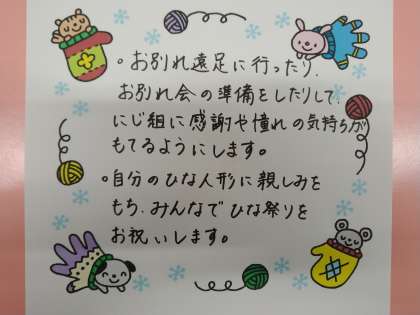 。お別れ遠足に行ったり、
お別れ会の準備をしたりして、
にじ組に感謝や憧れの気持ちが
もてるようにします。
。自分のひな人形に親しみを
もち、みんなでひな祭りを
お祝いします。